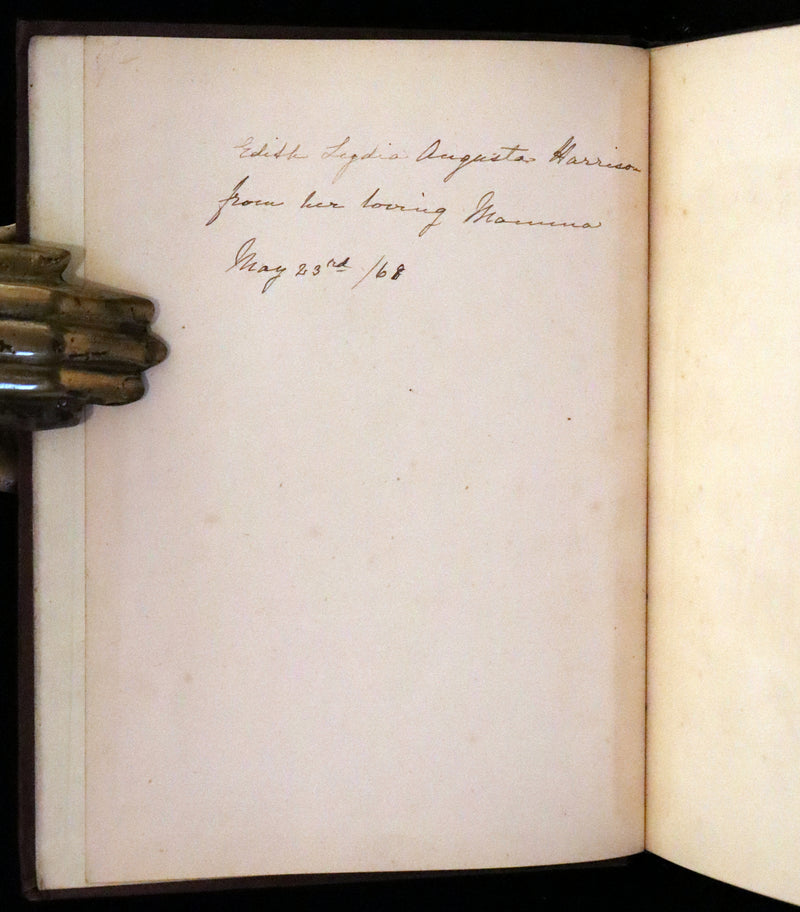 Edith Lydia Augusta Harrison
from her loving Mamma
May 23rd /68